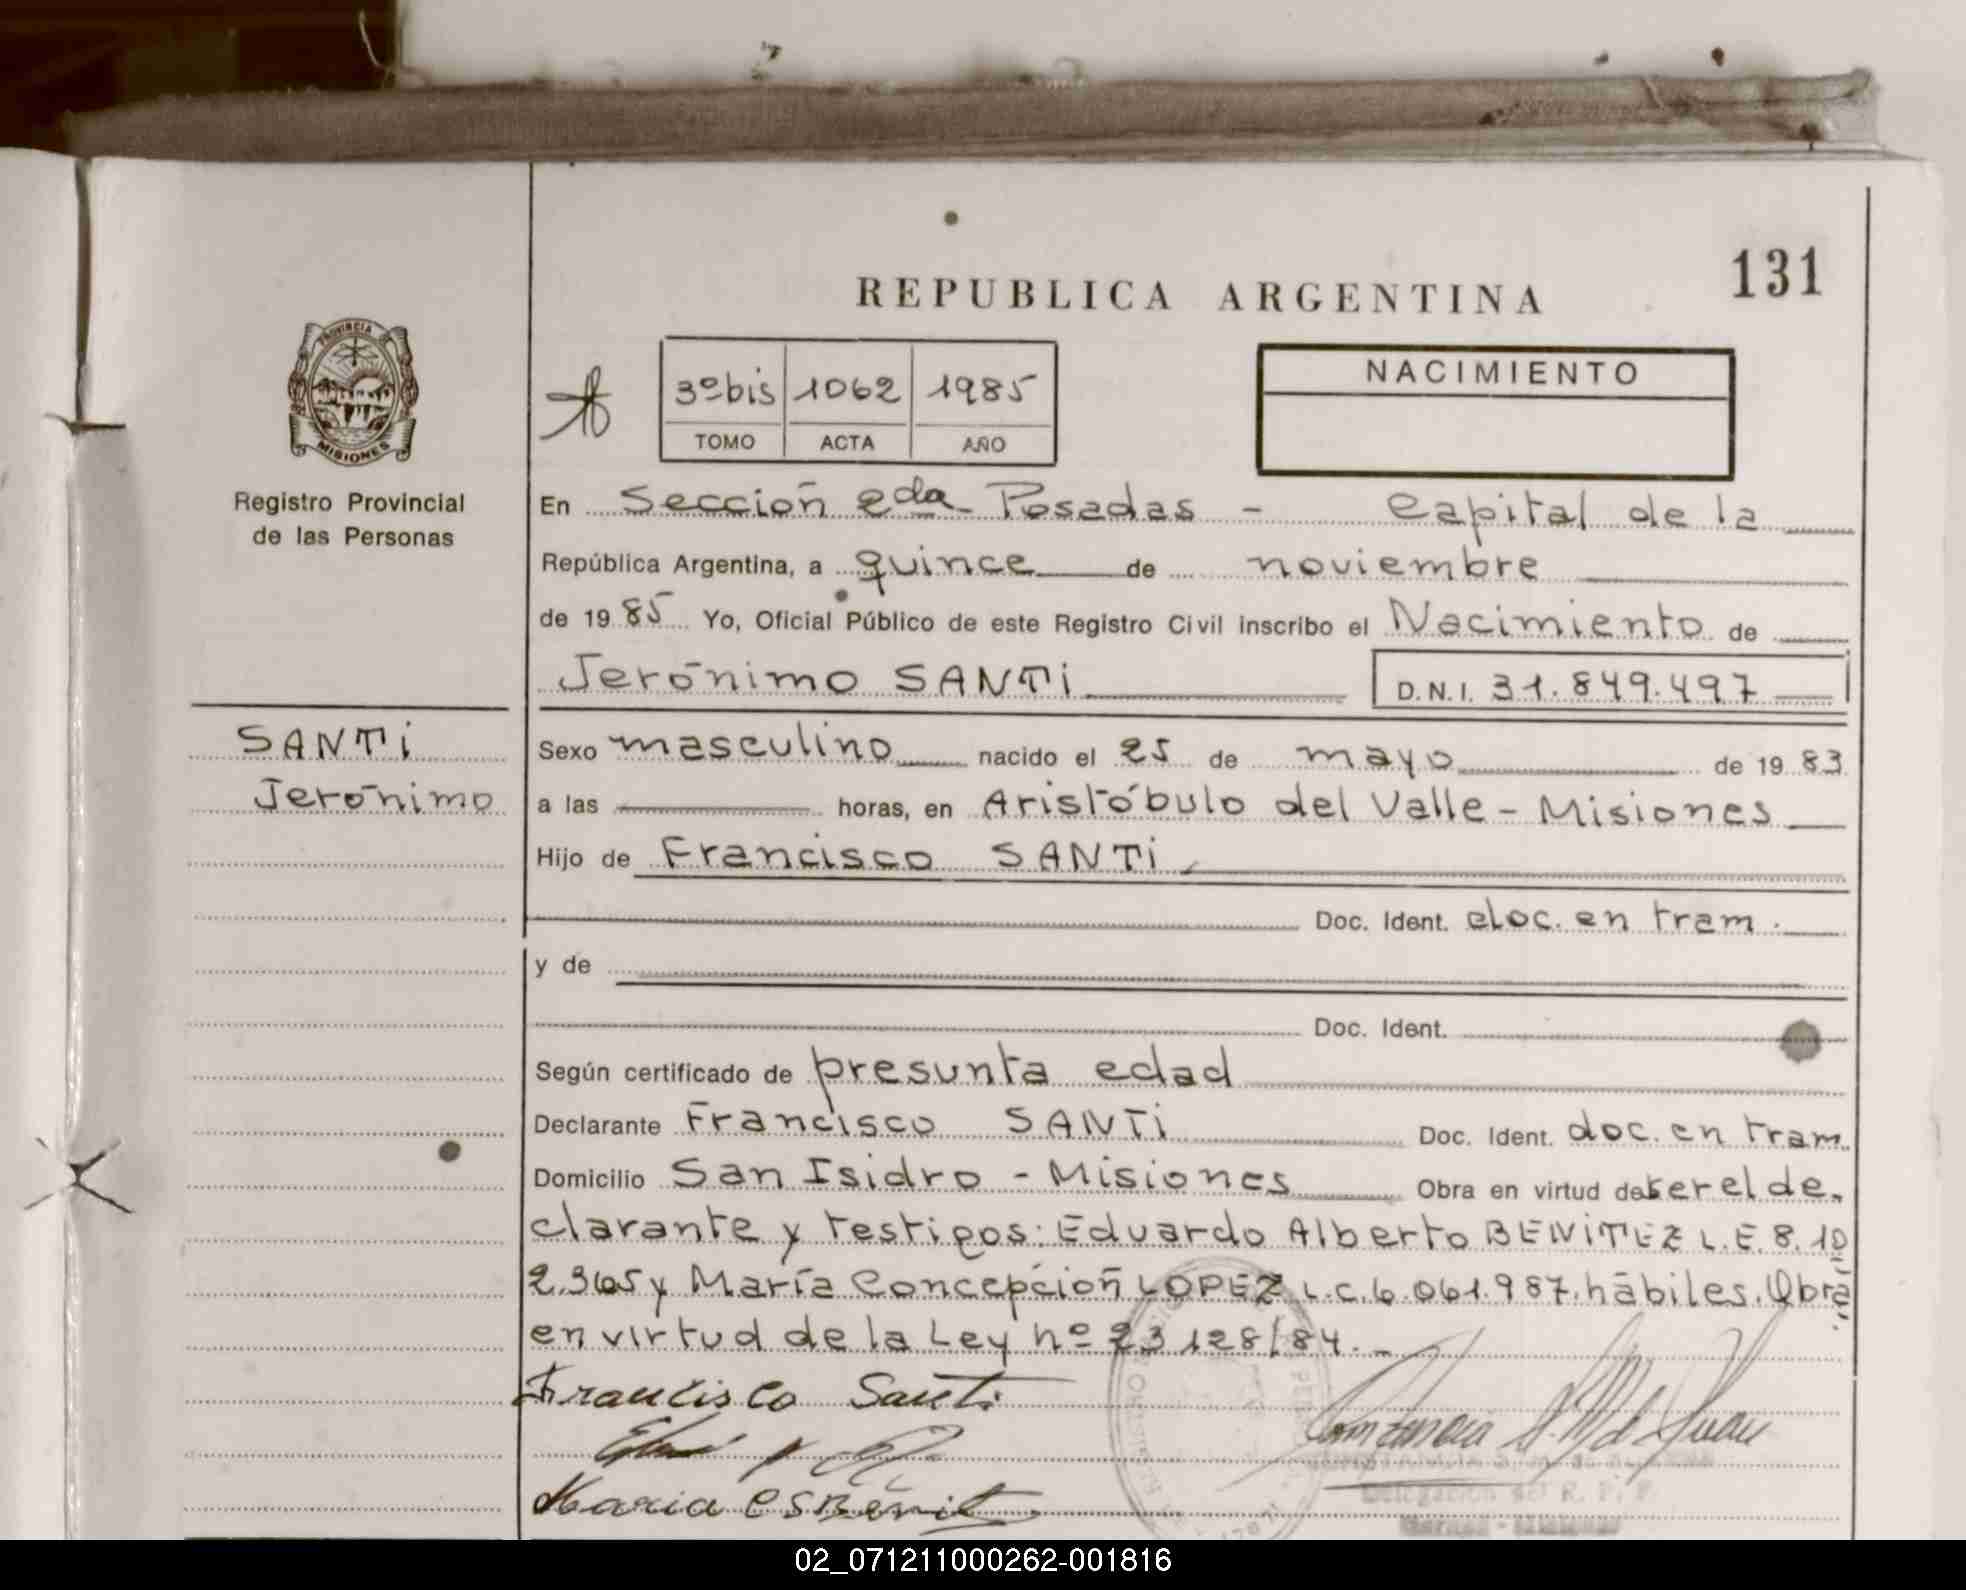 131
REPUBLICA ARGENTINA
PROVINCIA DE
MISIONES
Registro Provincial
de las Personas
3º bis 1062 1985
TOMO ACTA AÑO
NACIMIENTO
En Sección 2da Posadas - Capital de la
República Argentina, a quince de noviembre
de 19 85 Yo, Oficial Público de este Registro Civil inscribo el Nacimiento de
Jerónimo SANTi D.N.I. 31.849.497
SANTi
Jerónimo
Sexo masculino nacido el 25 de mayo de 19 83
a las horas, en Aristóbulo del Valle - Misiones
Hijo de Francisco SANTi
Doc. Ident. doc. en tram.
y de
Doc. Ident.
Según certificado de presunta edad
Declarante Francisco SANTi Doc. Ident. doc. en tram.
Domicilio San Isidro - Misiones Obra en virtud de ser el de-
clarante y testigos: Eduardo Alberto BENiTEZ L.E. 8.10
2.365 y María Concepción LOPEZ L.C. 6.061.987. hábiles. Obra
en virtud de la Ley nº 23 128/84.-
Francisco Santi
Delegación del R. P. P.
02_071211000262-001816